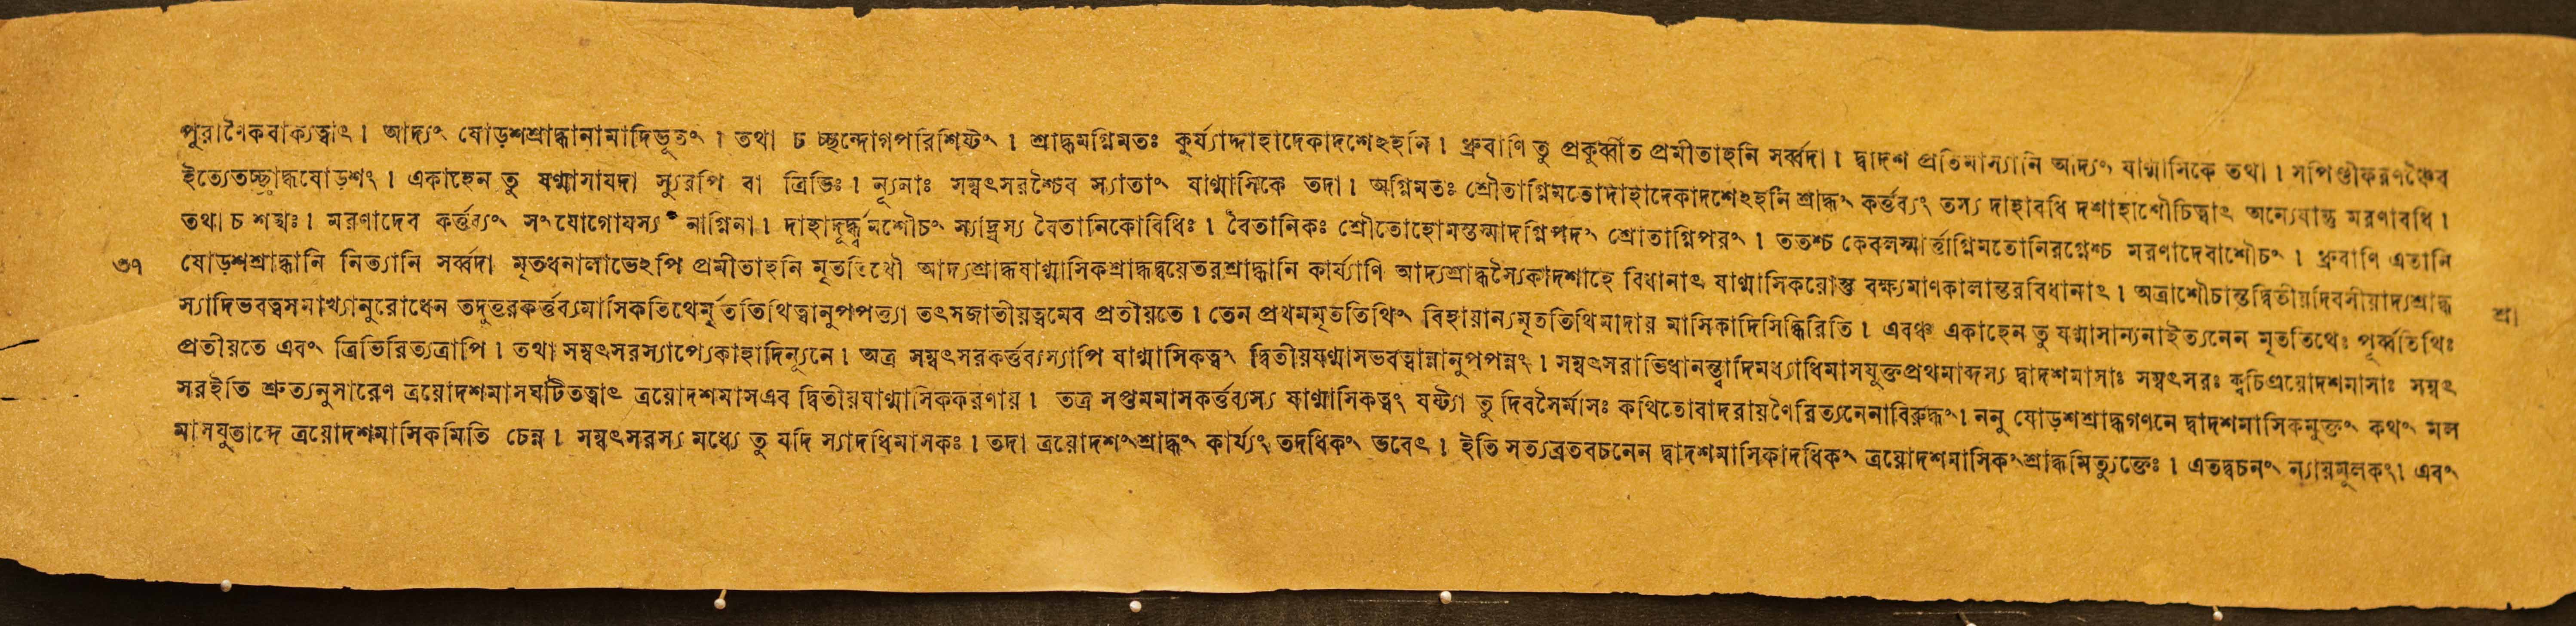 পুরাণৈকবাক্যত্বাৎ। আদ্যং ষোড়শশ্রাদ্ধানামাদিভূতং। তথা চ চ্ছন্দোগপরিশিষ্টং। শ্রাদ্ধমগ্নিমতঃ কুর্য্যাদ্দাহাদেকাদশেঽহনি। ধ্রুবাণি তু প্রকুর্ব্বীত প্রমীতাহনি সর্ব্বদা। দ্বাদশ প্রতিমাস্যানি আদ্যং ষাণ্মাসিকে তথা। সপিণ্ডীকরণঞ্চৈব
ইত্যেতচ্ছ্রাদ্ধষোড়শং। একাহেন তু ষণ্মাসাযদা স্যুরপি বা ত্রিভিঃ। ন্যূনাঃ সম্বৎসরশ্চৈব স্যাতাং ষাণ্মাসিকে তদা। অগ্নিমতঃ শ্রৌতাগ্নিমতোদাহাদেকাদশেঽহনি শ্রাদ্ধং কর্ত্তব্যং তস্য দাহাবধি দশাহাশৌচিত্বাৎ অন্যেষান্তু মরণাবধি।
তথা চ শঙ্খঃ। মরণাদেব কর্ত্তব্যং সংযোগোযস্য নাগ্নিনা। দাহাদূর্দ্ধ্বমশৌচং স্যাদ্যস্য বৈতানিকোবিধিঃ। বৈতানিকঃ শ্রৌতোহোমস্তস্মাদগ্নিপদং শ্রৌতাগ্নিপরং। ততশ্চ কেবলস্মার্ত্তাগ্নিমতোনিরগ্নেশ্চ মরণাদেবাশৌচং। ধ্রুবাণি এতানি
৩৭ ষোড়শশ্রাদ্ধানি নিত্যানি সর্ব্বদা মৃতধনালাভেঽপি প্রমীতাহনি মৃততিথৌ আদ্যশ্রাদ্ধষাণ্মাসিকশ্রাদ্ধদ্বয়েতরশ্রাদ্ধানি কার্য্যাণি আদ্যশ্রাদ্ধস্যৈকাদশাহে বিধানাৎ ষাণ্মাসিকয়োস্তু বক্ষ্যমাণকালান্তরবিধানাৎ। অত্রাশৌচান্তদ্বিতীয়দিবসীয়াদ্যশ্রাদ্ধ
স্যাদিভবত্বসমাখ্যানুরোধেন তদুত্তরকর্ত্তব্যমাসিকতিথের্মৃততিথিত্বানুপপত্ত্যা তৎসজাতীয়ত্বমেব প্রতীয়তে। তেন প্রথমমৃততিথিং বিহায়ান্যমৃততিথিমাদায় মাসিকাদিসিদ্ধিরিতি। এবঞ্চ একাহেন তু ষণ্মাসান্যনাইত্যনেন মৃততিথেঃ পূর্ব্বতিথিঃ শ্রা
প্রতীয়তে এবং ত্রিভিরিত্যত্রাপি। তথা সম্বৎসরস্যাপ্যেকাহাদিন্যূনে। অত্র সম্বৎসরকর্ত্তব্যস্যাপি ষাণ্মাসিকত্বং দ্বিতীয়ষণ্মাসভবত্বান্নানুপপন্নং। সম্বৎসরাভিধানন্ত্বাদিমধ্যাধিমাসযুক্তপ্রথমাব্দস্য দ্বাদশমাসাঃ সম্বৎসরঃ ক্বচিত্রয়োদশমাসাঃ সম্বৎ
সরইতি শ্রুত্যনুসারেণ ত্রয়োদশমাসঘটিতত্বাৎ ত্রয়োদশমাসএব দ্বিতীয়ষাণ্মাসিককরণায়। তত্র সপ্তমমাসকর্ত্তব্যস্য ষাণ্মাসিকত্বং ষষ্ট্যা তু দিবসৈর্মাসঃ কথিতোবাদরায়ণৈরিত্যনেনাবিরুদ্ধং। ননু ষোড়শশ্রাদ্ধগণনে দ্বাদশমাসিকমুক্তং কথং মল
মাসযুতাব্দে ত্রয়োদশমাসিকমিতি চেন্ন। সম্বৎসরস্য মধ্যে তু যদি স্যাদধিমাসকঃ। তদা ত্রয়োদশংশ্রাদ্ধং কার্য্যং তদধিকং ভবেৎ। ইতি সত্যব্রতবচনেন দ্বাদশমাসিকাদধিকং ত্রয়োদশমাসিকংশ্রাদ্ধমিত্যুক্তেঃ। এতদ্বচনং ন্যায়মূলকং। এবং